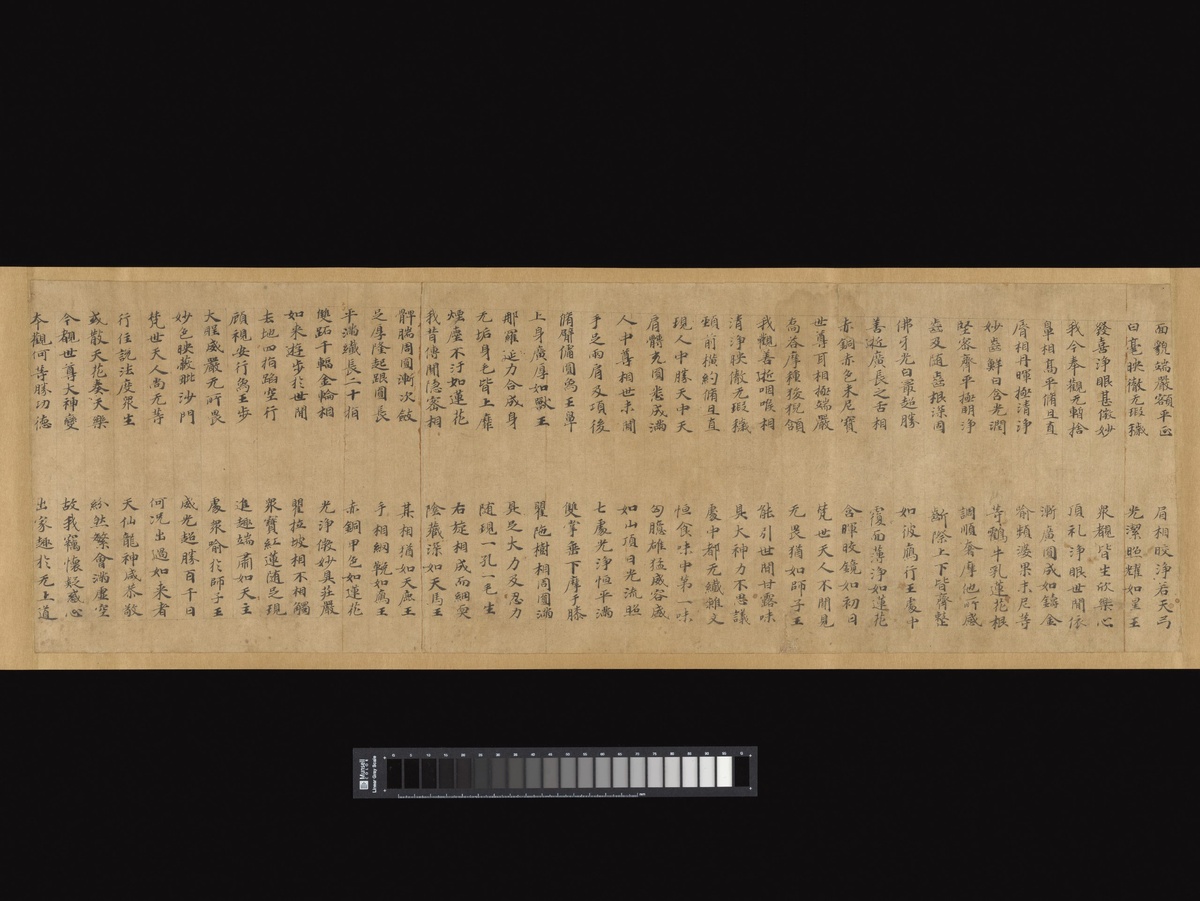 面貌端嚴額平正 眉相皎淨若天弓
白毫映徹无瑕穢 光潔照耀如星王
發喜淨眼甚微妙 眾覩皆生欣樂心
我今奉觀无暫捨 頂礼淨眼世間依
鼻相高平脩且直 漸廣圓成如鑄金
脣相丹暉極清淨 喻頻婆果末尼等
妙齒鮮白含光潤 等鵝牛乳蓮花根
堅密齊平極明淨 調順奢摩他所感
齒及随齒根深固 斷際上下皆齊整
佛牙光白最超勝 如彼鵝行王處中
善逝廣長之舌相 覆面薄淨如蓮花
赤銅赤色末尼寶 含暉皎鏡如初日
世尊耳相極端嚴 梵世天人不聞見
喬答摩種狻猊頷 无畏猶如師子王
我觀善逝咽喉相 能引世間甘露味
清淨映徹无瑕穢 具大神力不思議
頸前橫約脩且直 處中都无纖雜文
現人中勝天中天 恒食味中第一味
肩髆充圓悉成滿 匈臆雄猛威容盛
人中尊相世未聞 如山頂日光流照
手足兩肩及項後 七處光淨恒平滿
臂傭圓鳥王鼻 雙掌垂下摩于膝
上身廣厚如獸王 瞿陁樹相周圓滿
那羅延力合成身 具足大力及忍力
无垢身毛皆上靡 随現一孔一毛生
煙塵不汙如蓮花 右旋相成而細耎
我昔傳聞隱密相 陰藏深如天馬王
髀腨周圓漸次斂 其相猶如天鹿王
足厚隆起跟圓長 手相網鞔如鴈王
平滿纖長二十指 赤銅甲色如蓮花
雙跖千輻金輪相 光淨微妙具莊嚴
如來遊步於世間 瞿拉坡相不相觸
去地四指蹈空行 眾寶紅蓮随足現
顧視安行鳥王步 進趣端肅如天主
大威嚴无所畏 處眾喻於師子王
妙色映蔽毗沙門 威光超勝百千日
梵世天人尚无等 何況出過如來者
行住說法度眾生 天仙龍神咸恭敬
或散天花奏天樂 紛然繁會滿虛空
今覩世尊大神變 故我竊懷疑惑心
本觀何等勝功德 出家趣於无上道